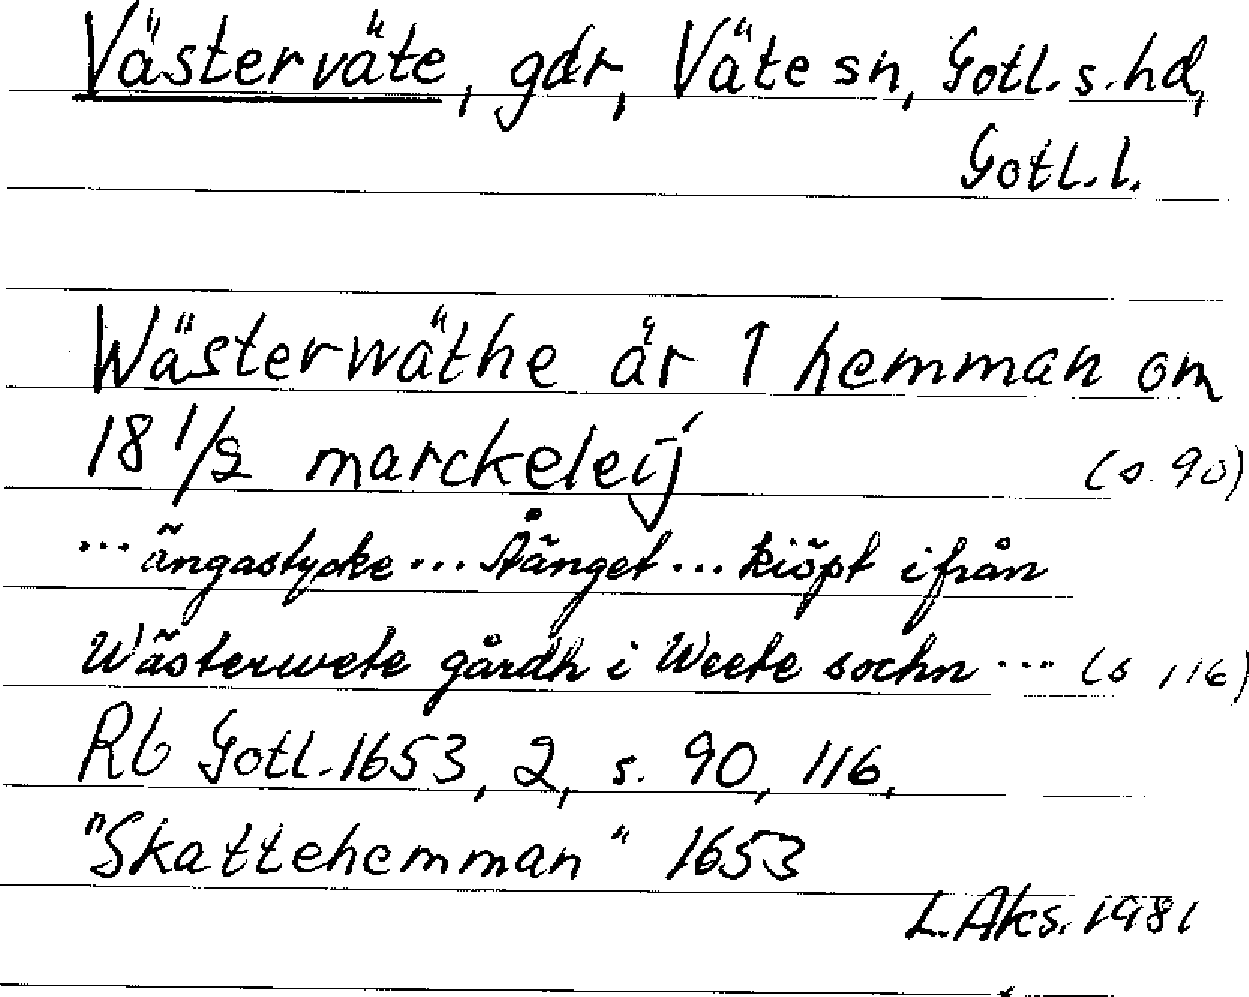 Västerväte, gdr, Väte sn, Gotl. s. hd,
Gotl. l.
Wästerwäthe är 1 hemman om
18 1/2 marckeleij (s. 90)
... ängastycke ... Åänget ... kiöpt ifrån
Wästerwete gårdh i Weete sochn ... (s 116)
Rb Gotl. 1653, 2, s. 90, 116.
"Skattehemman" 1653
L. Aks. 1981